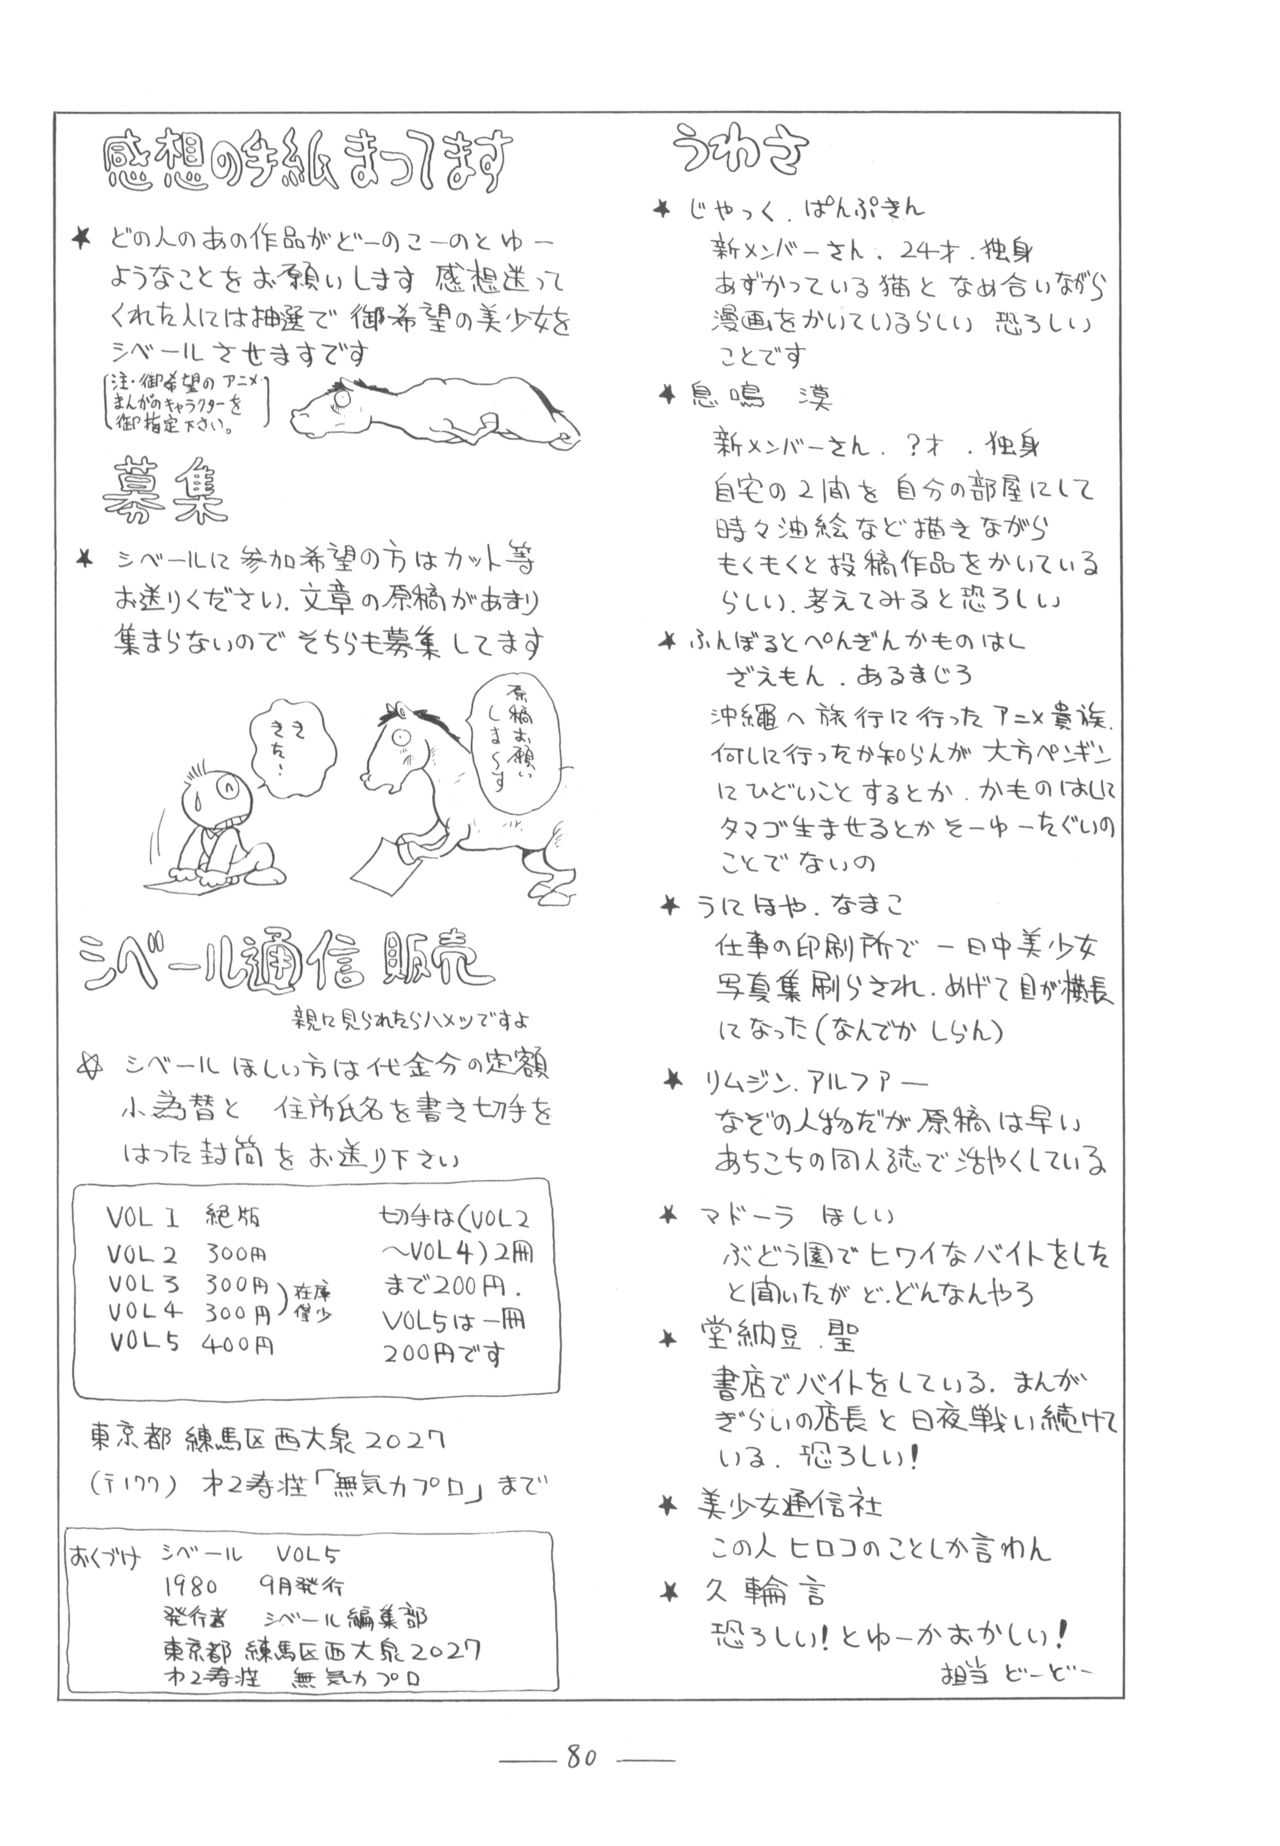 感想の手紙まってます
★ どの人のあの作品がどーのこーのとゆー
ようなことをお願いします 感想送って
くれた人には抽選で 御希望の美少女を
シベールさせますです
注・御希望のアニメ・
まんがのキャラクターを
御指定下さい。
募集
★ シベールに参加希望の方はカット等
お送りください.文章の原稿があまり
集まらないのでそちらも募集してます
きた〜
原稿お願い
しま〜す
シベール通信販売
親に見られたらハメツですよ
☆ シベールほしい方は代金分の定額
小為替と 住所氏名を書き切手を
はった封筒をお送り下さい
VOL 1 絶版
VOL 2 300円
VOL 3 300円
VOL 4 300円
在庫
僅少
VOL 5 400円
切手は(VOL2
〜VOL4)2冊
まで200円.
VOL5は一冊
200円です
東京都練馬区西大泉2027
(〒177) 才2寿荘「無気力プロ」まで
おくづけ シベール VOL5
1980 9月発行
発行者 シベール編集部
東京都練馬区西大泉2027
才2寿荘 無気力プロ
うわさ
★ じゃっく.ぱんぷきん
新メンバーさん.24才.独身
あずかっている猫となめ合いながら
漫画をかいているらしい 恐ろしい
ことです
★ 息鳴 漠
新メンバーさん.?才.独身
自宅の2間を自分の部屋にして
時々油絵など描きながら
もくもくと投稿作品をかいている
らしい.考えてみると恐ろしい
★ ふんぼるとぺんぎんかものはし
ざえもん.あるまじろ
沖縄へ旅行に行ったアニメ貴族.
何しに行ったか知らんが大方ペンギン
にひどいことするとか.かものはしに
タマゴ生ませるとかそーゆーたぐいの
ことでないの
★ うにほや.なまこ
仕事の印刷所で一日中美少女
写真集刷らされ.めげて目が横長
になった(なんでかしらん)
★ リムジン.アルファー
なぞの人物だが原稿は早い
あちこちの同人誌で活やくしている
★ マドーラ ほしい
ぶどう園でヒワイなバイトをした
と聞いたがど.どんなんやろ
★ 堂納豆.聖
書店でバイトをしている.まんが
ぎらいの店長と日夜戦い続けて
いる.恐ろしい!
★ 美少女通信社
この人ヒロコのことしか言わん
★ 久輪言
恐ろしい!とゆーかおかしい!
担当 どーどー
80